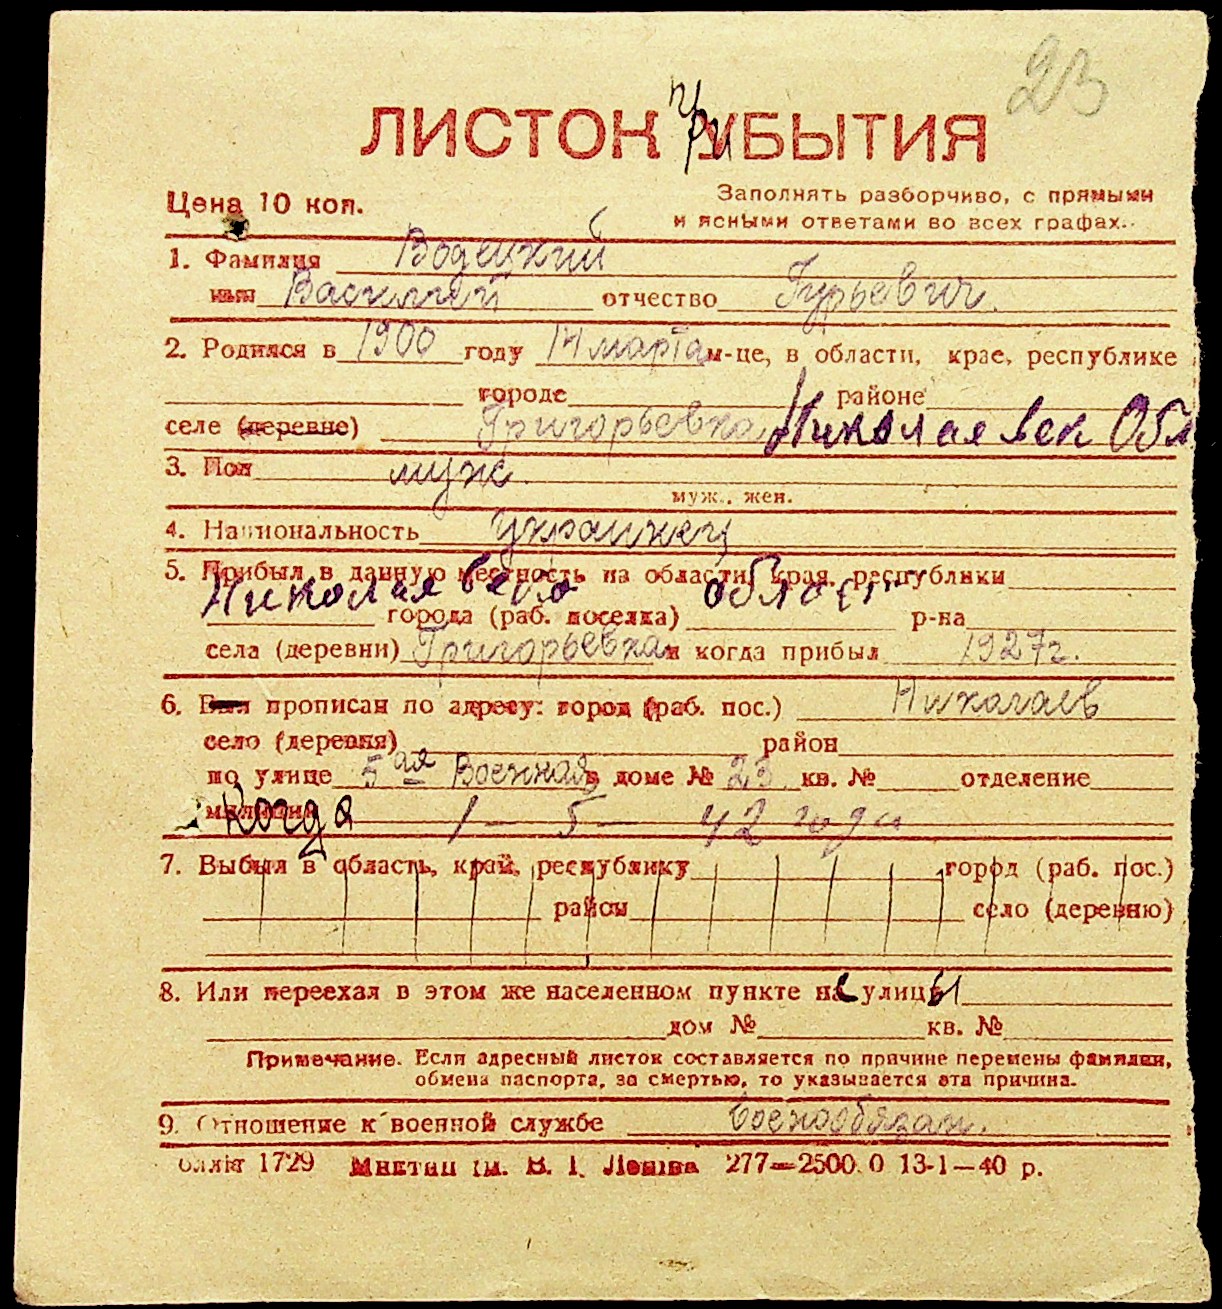 23
ЛИСТОК прибытия
Цена 10 коп.
Заполнять разборчиво, с прямыми
и ясными ответами во всех графах.
1. Фамилия Водецкий
имя Василий отчество Гурьевич.
2. Родился в 1900 году 14 марта м-це, в области, крае, республике
городе районе
селе (деревне) Григорьевка Николаевск Обл
3. Пол муж.
муж., жен.
4. Национальность украинец
5. Прибыл в данную местность из области, края, республики
Николаевско област
города (раб. поселка) р-на
села (деревни) Григорьевка и когда прибыл 1927 г.
6. Был прописан по адресу: город (раб. пос.) Николаев
село (деревня) район
по улице 5ая Военная в доме № 23 кв. № отделение
милиции Когда 1 – 5 – 42 года
7. Выбыл в область, край, республику город (раб. пос.)
район село (деревню)
8. Или переехал в этом же населенном пункте с улицы
дом № кв. №
Примечание. Если адресный листок составляется по причине перемены фамилии,
обмена паспорта, за смертью, то указывается эта причина.
9. Отношение к военной службе военнообязан.
1729 им. В. І. Леніна 277—2500 0 13-1—40 р.